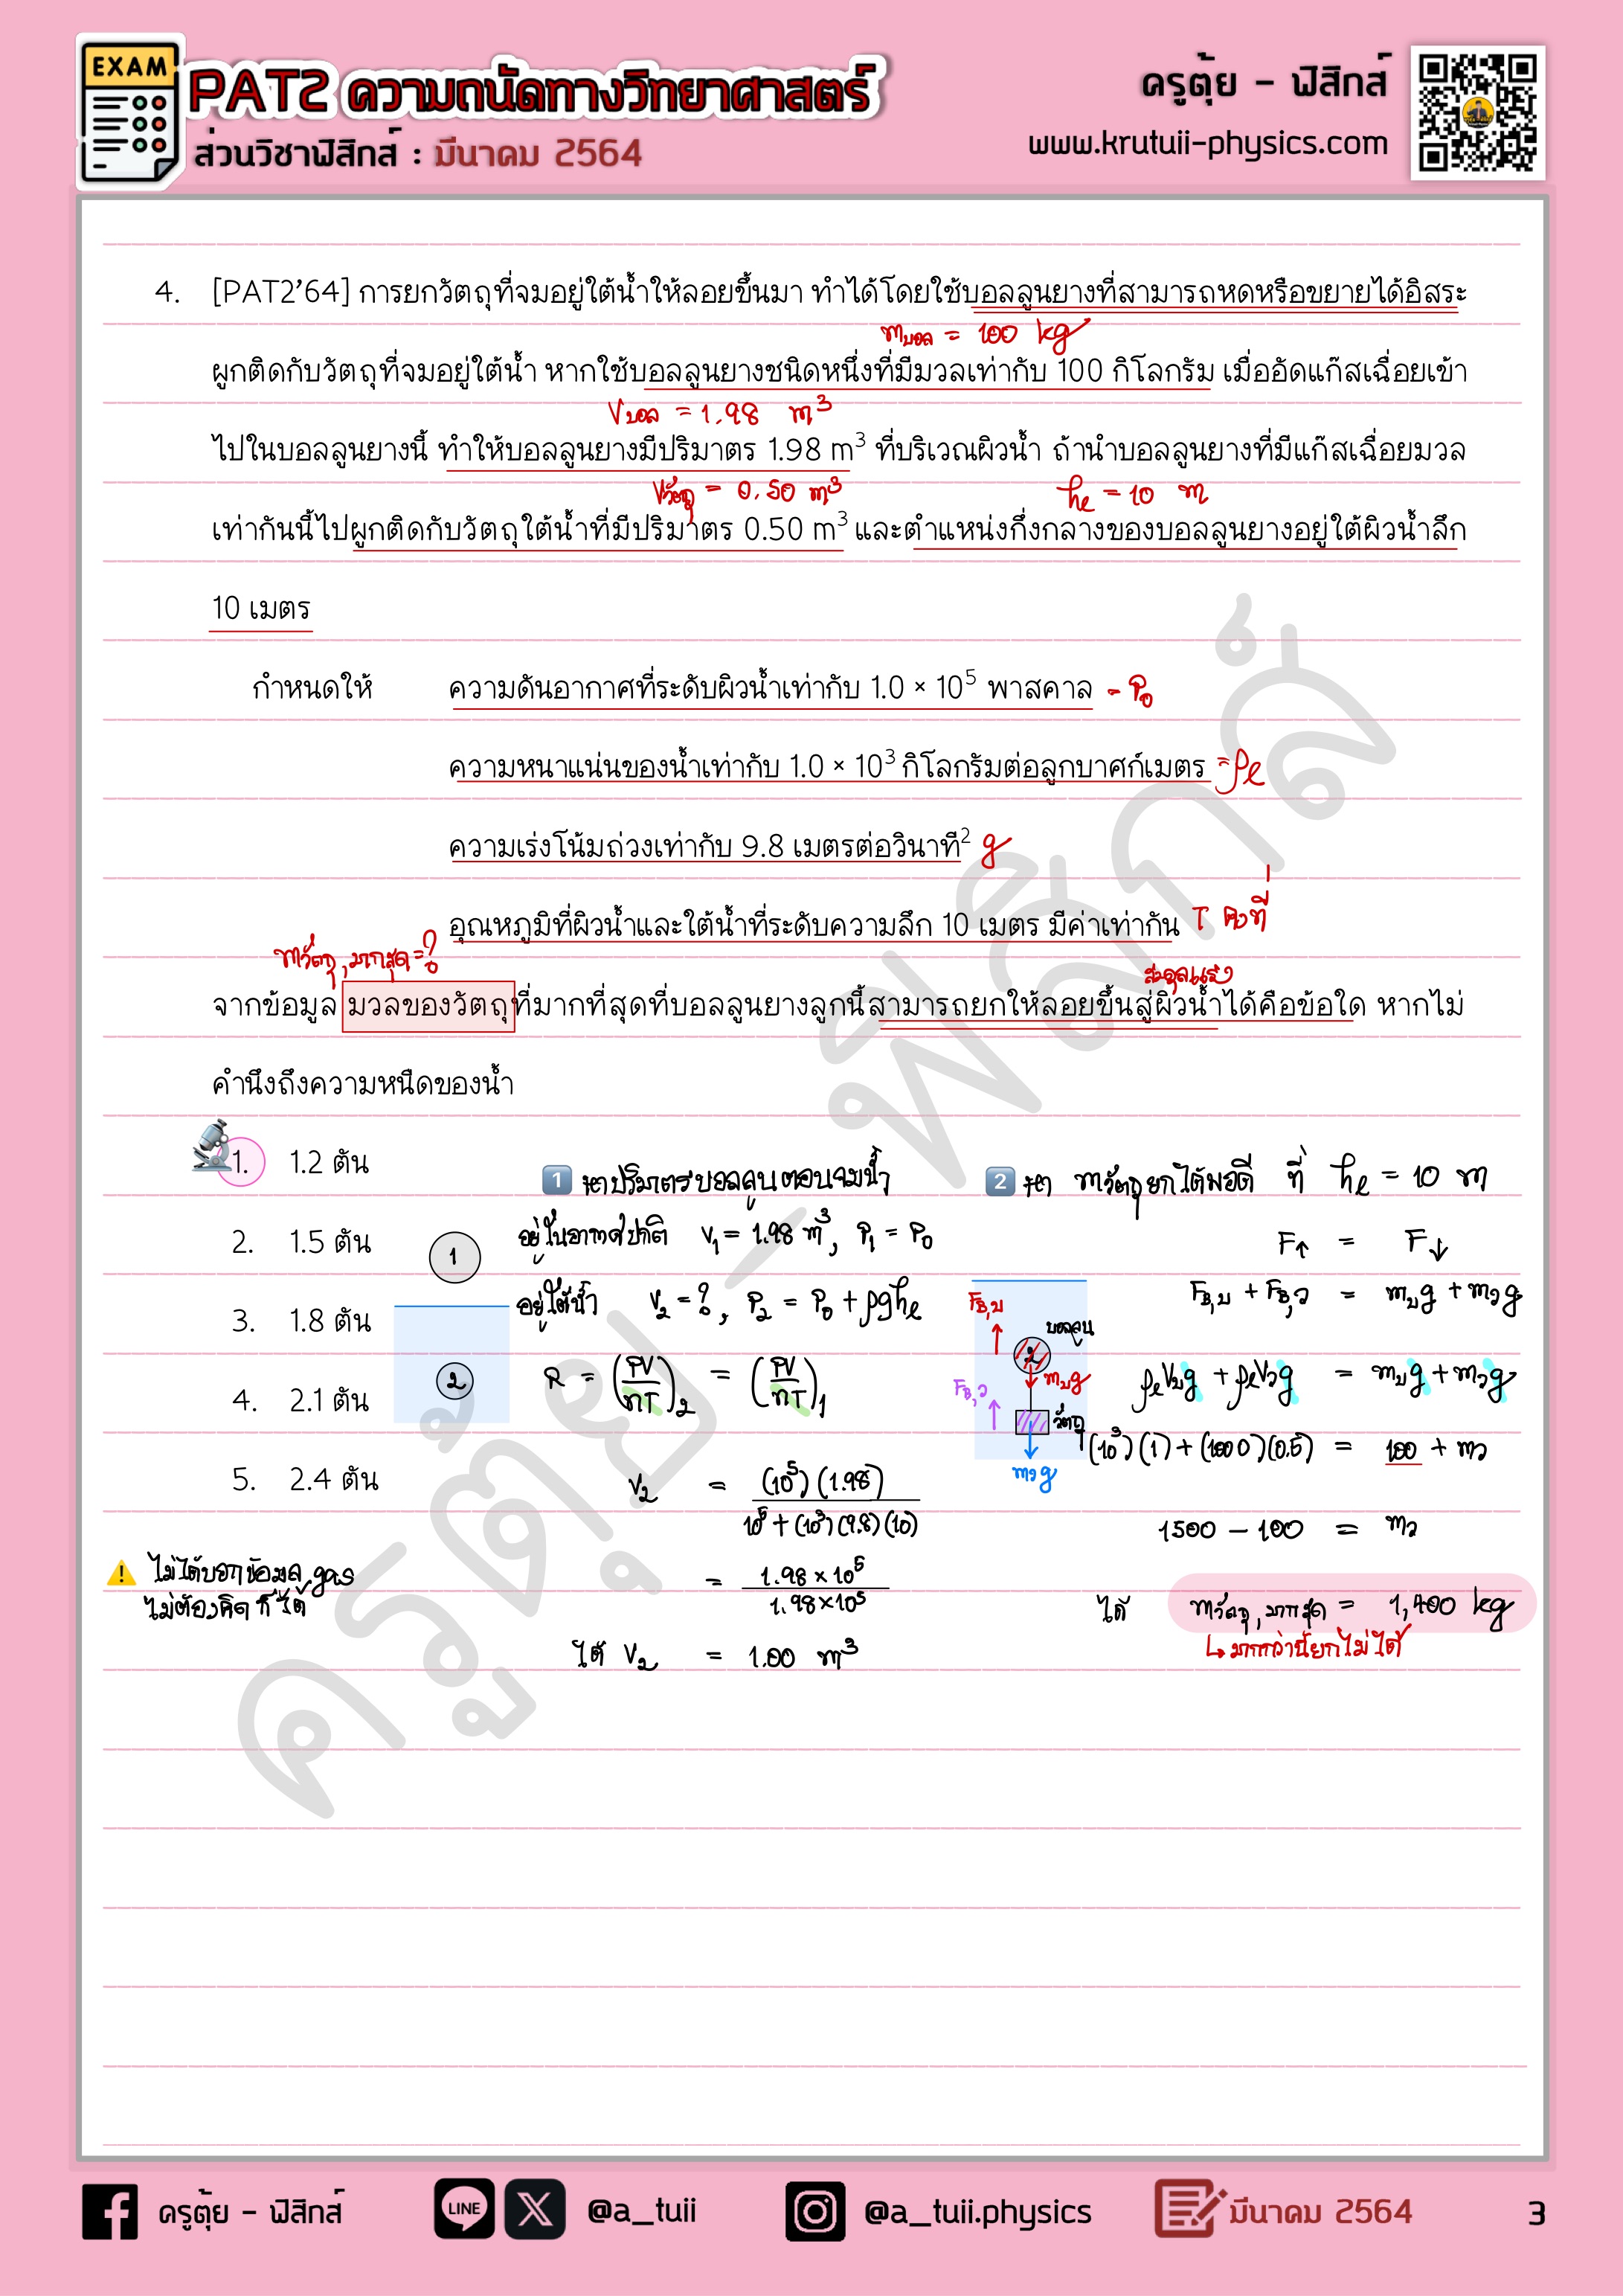 EXAM
PAT2 ความถนัดทางวิทยาศาสตร์
ส่วนวิชาฟิสิกส์ : มีนาคม 2564
ครูตุ้ย - ฟิสิกส์
www.krutuii-physics.com
4. [PAT2’64] การยกวัตถุที่จมอยู่ใต้น้ำให้ลอยขึ้นมา ทำได้โดยใช้บอลลูนยางที่สามารถหดหรือขยายได้อิสระ
mบอล = 100 kg
ผูกติดกับวัตถุที่จมอยู่ใต้น้ำ หากใช้บอลลูนยางชนิดหนึ่งที่มีมวลเท่ากับ 100 กิโลกรัม เมื่ออัดแก๊สเฉื่อยเข้า
Vบอล = 1.98 m³
ไปในบอลลูนยางนี้ ทำให้บอลลูนยางมีปริมาตร 1.98 m³ ที่บริเวณผิวน้ำ ถ้านำบอลลูนยางที่มีแก๊สเฉื่อยมวล
Vวัตถุ = 0.50 m³ hₗ = 10 m
เท่ากันนี้ไปผูกติดกับวัตถุใต้น้ำที่มีปริมาตร 0.50 m³ และตำแหน่งกึ่งกลางของบอลลูนยางอยู่ใต้ผิวน้ำลึก
10 เมตร
กำหนดให้ ความดันอากาศที่ระดับผิวน้ำเท่ากับ 1.0 × 10⁵ พาสคาล - P₀
ความหนาแน่นของน้ำเท่ากับ 1.0 × 10³ กิโลกรัมต่อลูกบาศก์เมตร = ρₗ
ความเร่งโน้มถ่วงเท่ากับ 9.8 เมตรต่อวินาที² g
อุณหภูมิที่ผิวน้ำและใต้น้ำที่ระดับความลึก 10 เมตร มีค่าเท่ากัน T คงที่
mวัตถุ, มากสุด = ? สมดุลแรง
จากข้อมูล มวลของวัตถุที่มากที่สุดที่บอลลูนยางลูกนี้สามารถยกให้ลอยขึ้นสู่ผิวน้ำได้คือข้อใด หากไม่
คำนึงถึงความหนืดของน้ำ
1. 1.2 ตัน
2. 1.5 ตัน
3. 1.8 ตัน
4. 2.1 ตัน
5. 2.4 ตัน
⚠ ไม่ได้บอกข้อมูล gas
ไม่ต้องคิดก็ได้
1
2
1 หาปริมาตรบอลลูนตอนจมน้ำ
อยู่ในอากาศปกติ V₁ = 1.98 m³, P₁ = P₀
อยู่ใต้น้ำ V₂ = ?, P₂ = P₀ + ρghₗ
R = (PV/nT)₂ = (PV/nT)₁
V₂ = (10⁵)(1.98) / 10⁵ + (10³)(9.8)(10)
= 1.98 × 10⁵ / 1.98 × 10⁵
ได้ V₂ = 1.00 m³
2 หา mวัตถุยกได้พอดี ที่ hₗ = 10 m
F↑ = F↓
F_B,บ + F_B,ว = mบg + mวg
ρₗVบg + ρₗVวg = mบg + mวg
(10³)(1) + (1000)(0.5) = 100 + mว
1500 - 100 = mว
ได้ mวัตถุ, มากสุด = 1,400 kg
↳ มากกว่านี้ยกไม่ได้
F_B,บ
บอลลูน
2
mบg
F_B,ว
วัตถุ
mวg
ครูตุ้ย - ฟิสิกส์
ครูตุ้ย - ฟิสิกส์
LINE
@a_tuii
@a_tuii.physics
มีนาคม 2564
3